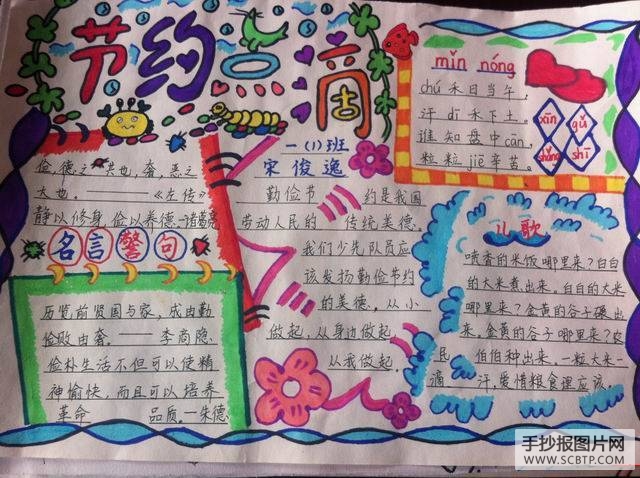 节约点滴
mǐn nóng
chú禾日当午,
汗dī禾下土。
谁知盘中cān,
粒粒jiē辛苦。
xīn gǔ
shǎng shī
一(1)班
宋俊逸
俭,德之共也,奢,恶之
大也。——《左传》
静以修身,俭以养德-诸葛亮
名言警句
历览前贤国与家,成由勤
俭败由奢。——李商隐
俭朴生活不但可以使精
神愉快,而且可以培养
革命 品质。—朱德
勤俭节 约是我国
劳动人民的 传统美德.
我们少先队员应
该发扬勤俭节约
的美德。从小
做起,从身边做起
从我做起.
儿歌
喷香的米饭哪里来?白白
的大米煮出来。白白的大米
哪里来?金黄的谷子碾出
来。金黄的谷子哪里来?农
民 伯伯种出来。一粒大米一
滴 汗.爱惜粮食理应该.
手抄报图片网
WWW.SCBTP.COM